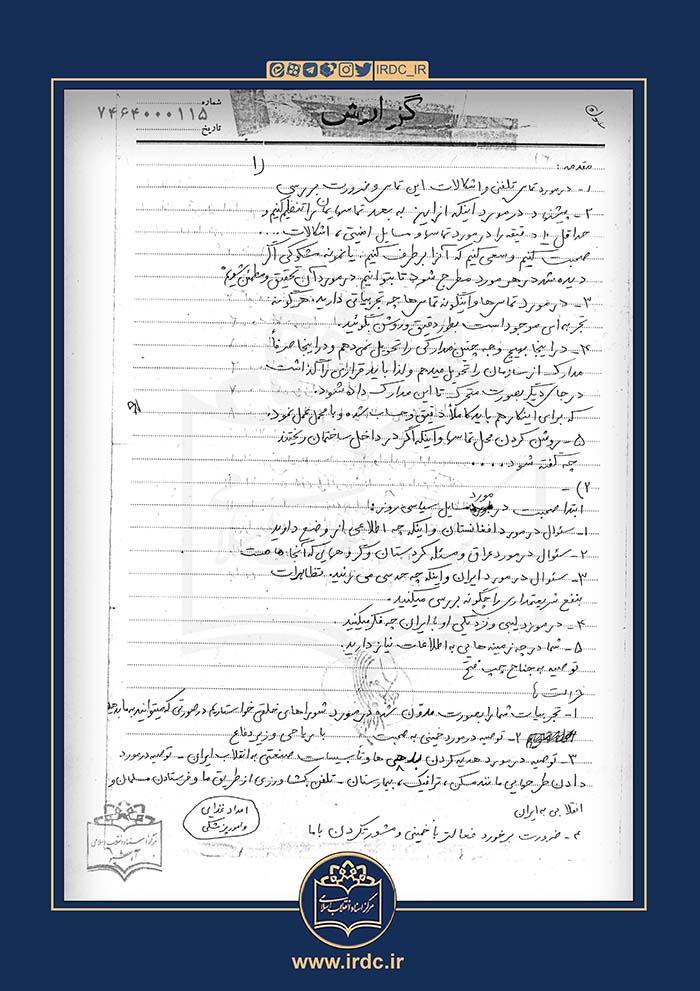 IRDC_IR
گزارش
شماره ۷۴۶۴۰۰۰۱۱۵
تاریخ
سوال
مقدمه :
(۱
۱- در مورد تماس تلفنی و اشکالات این تماس و ضرورت بررسی
۲- پیشنهاد در مورد اینکه از این به بعد تماسهایمان را تنظیم کنیم و
حداقل ۱۰ دقیقه را در مورد تماسها و مسایل امنیتی ، اشکالات ....
صحبت کنیم و سعی کنیم که آنرا برطرف کنیم . یا نمونه مشکوکی اگر
دیده شد در هر مورد مطرح شود تا بتوانیم در مورد آن تحقیق و مطمئن شویم
۳- در مورد تماس ها و اینگونه تماس ها چه تجربیاتی دارید . هر گونه
تجربه ای موجود است بطور دقیق و روشن بگوئید .
۴- در اینجا بهیچ وجه چنین مدارکی را تحویل نمی دهم و در اینجا صرفاً
مدارک از سازمان را تحویل میدهم و لذا باید قراری را گذاشت
در جای دیگر بصورت متحرک تا این مدارک داده شود .
که برای اینکار هم باید کاملاً دقیق و حساب شده و با محمل عمل نمود .
۵- روشن کردن محل تماسها و اینکه اگر در داخل ساختمان ریختند
چه گفته شود ....
۲) -
ابتدا صحبت در مورد مسایل سیاسی روز :
۱- سئوال در مورد افغانستان و اینکه چه اطلاعی از وضع دارید
۲- سئوال در مورد عراق و مسئله کردستان و گروههایی که آنجا هست
۳- سئوال در مورد ایران و اینکه چه حدسی می زنید . تظاهرات
بنفع شریعتمداری را چگونه بررسی میکنید .
۴- در مورد لیبی و نزدیکی او با ایران چه فکر میکنید .
۵- شما در چه زمینه هایی به اطلاعات نیاز دارید .
توصیه به جناح چپ فتح
درخواست ها
۱- تجربیات شما را بصورت مدون شده در مورد شوراهای خلقی خواستاریم در صورتی که میتوانند به ما بدهید
۲- توصیه در مورد خمینی به صحبت با ریاحی وزیر دفاع
۳- توصیه در مورد هدیه کردن ها و تأسیسات صنعتی به انقلاب ایران - توصیه در مورد
دادن طرحهایی مانند مسکن ، ترافیک ، بیمارستان - تلفن کشاورزی از طریق ما و فرستادن مسلمان و
انقلابی به ایران
امداد غذایی و امور پزشکی
۴- ضرورت برخورد فعالتر با خمینی و مشورت کردن با ما
مرکز اسناد انقلاب اسلامی
آرشیو
مرکز اسناد انقلاب اسلامی
www.irdc.ir